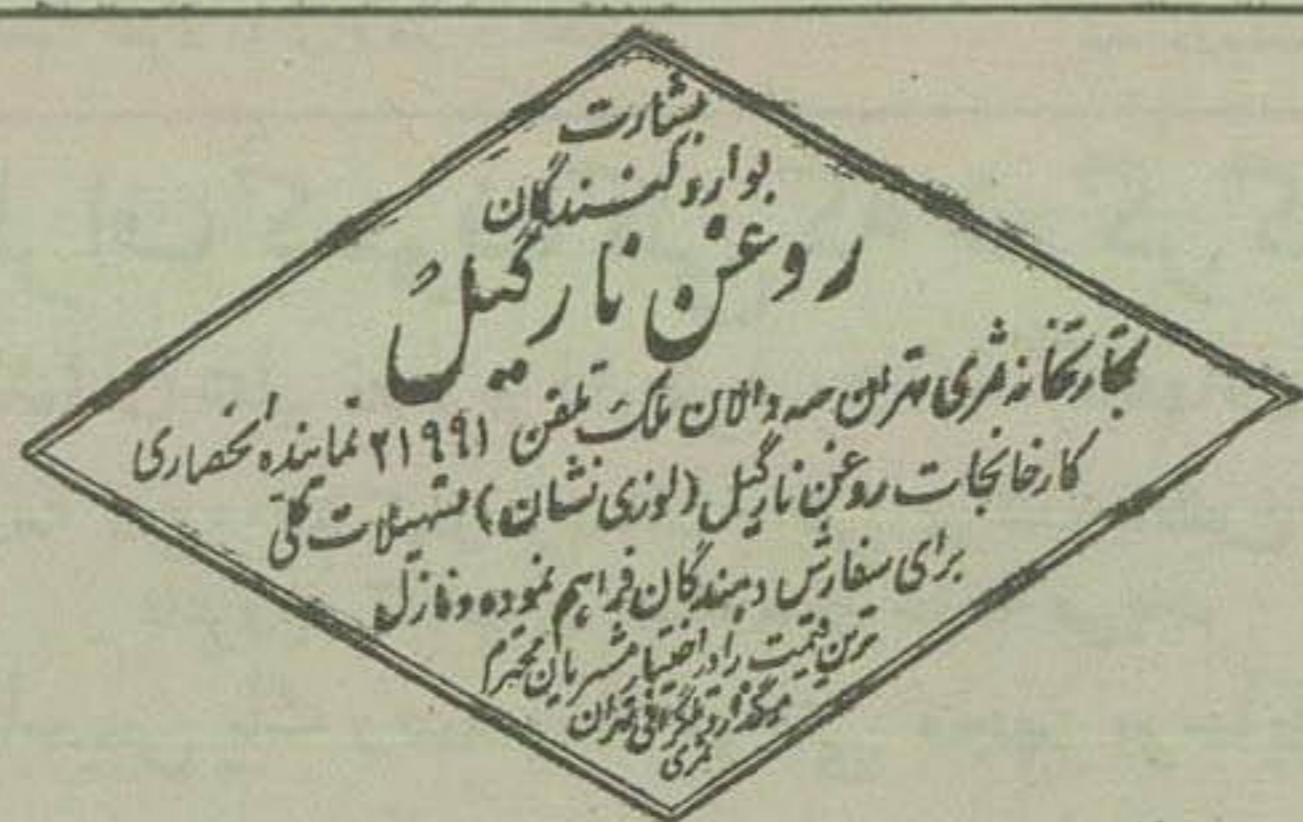 بشارت
بوارد کنندگان
روغن نارگیل
تجارتخانه ثمری تهران سه دالان ملک تلفن ۲۱۹۹۱ نماینده انحصاری
کارخانجات روغن نارگیل (لوزی نشان) تسهیلات کلی
برای سفارش دهندگان فراهم نموده و نازل
ترین قیمت را در اختیار مشتریان محترم
میگذارد تلگرافی تهران
ثمری